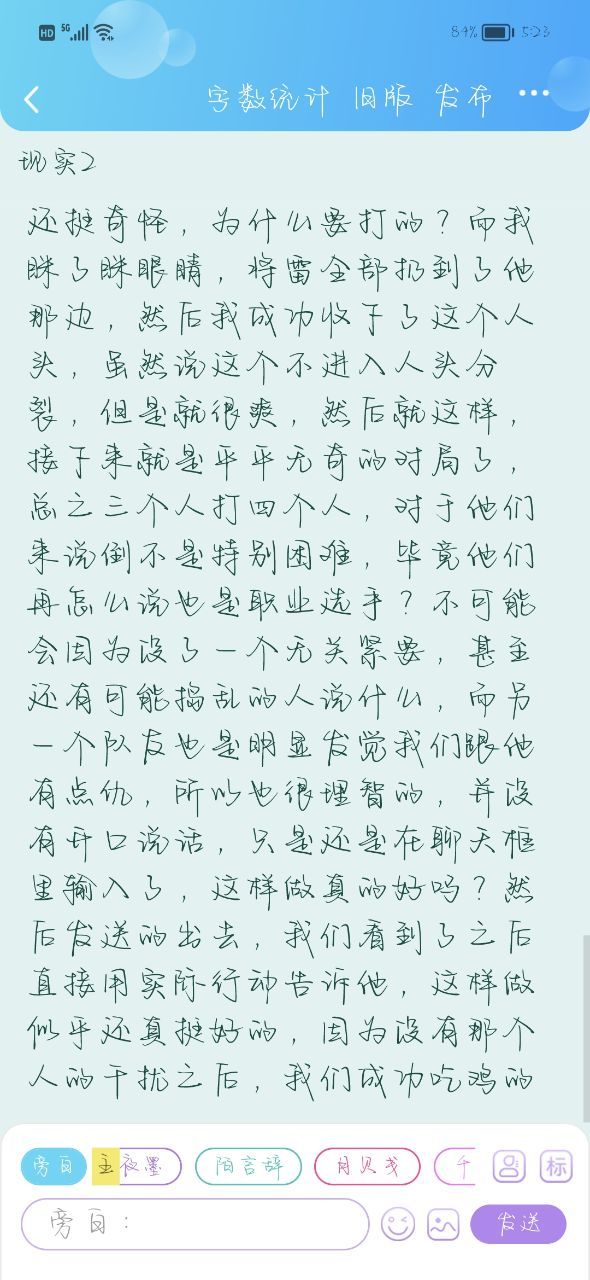 HD 5G 84% 5:23
字数统计 旧版 发布 •••
现实2
还挺奇怪，为什么要打的？而我
眯了眯眼睛，将雷全部扔到了他
那边，然后我成功收下了这个人
头，虽然说这个不进入人头分
裂，但是就很爽，然后就这样，
接下来就是平平无奇的对局了，
总之三个人打四个人，对于他们
来说倒不是特别困难，毕竟他们
再怎么说也是职业选手？不可能
会因为没了一个无关紧要，甚至
还有可能捣乱的人说什么，而另
一个队友也是明显发觉我们跟他
有点仇，所以也很理智的，并没
有开口说话，只是还是在聊天框
里输入了，这样做真的好吗？然
后发送的出去，我们看到了之后
直接用实际行动告诉他，这样做
似乎还真挺好的，因为没有那个
人的干扰之后，我们成功吃鸡的
旁白 主 夜墨 陌言辞 月贝戋 千 标
旁白： 发送